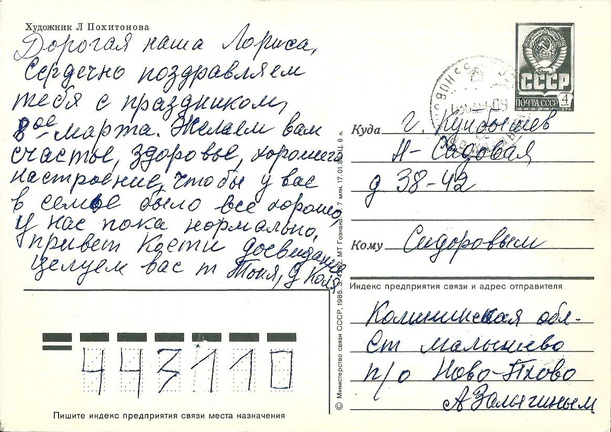 Художник Л Похитонова
Дорогая наша Лориса,
Сердечно поздравляем
тебя с праздником,
8ое марта. Желаем вам
счастье, здоровье, хорошего
настроение, чтобы у вас
в семье было все хорошо,
у нас пока нормально,
привет Кости досвидание
целуем вас т Тоня, д Коля,
СССР
ПОЧТА СССР 4
Куда г. Куйбышев
Н-Садовая
д 38-42
Кому Сидоровым
Индекс предприятия связи и адрес отправителя
Калининская обл-
Ст малышево
п/о
А Залыгиным
443110
Пишите индекс предприятия связи места назначения
© Министерство связи СССР, 1985.